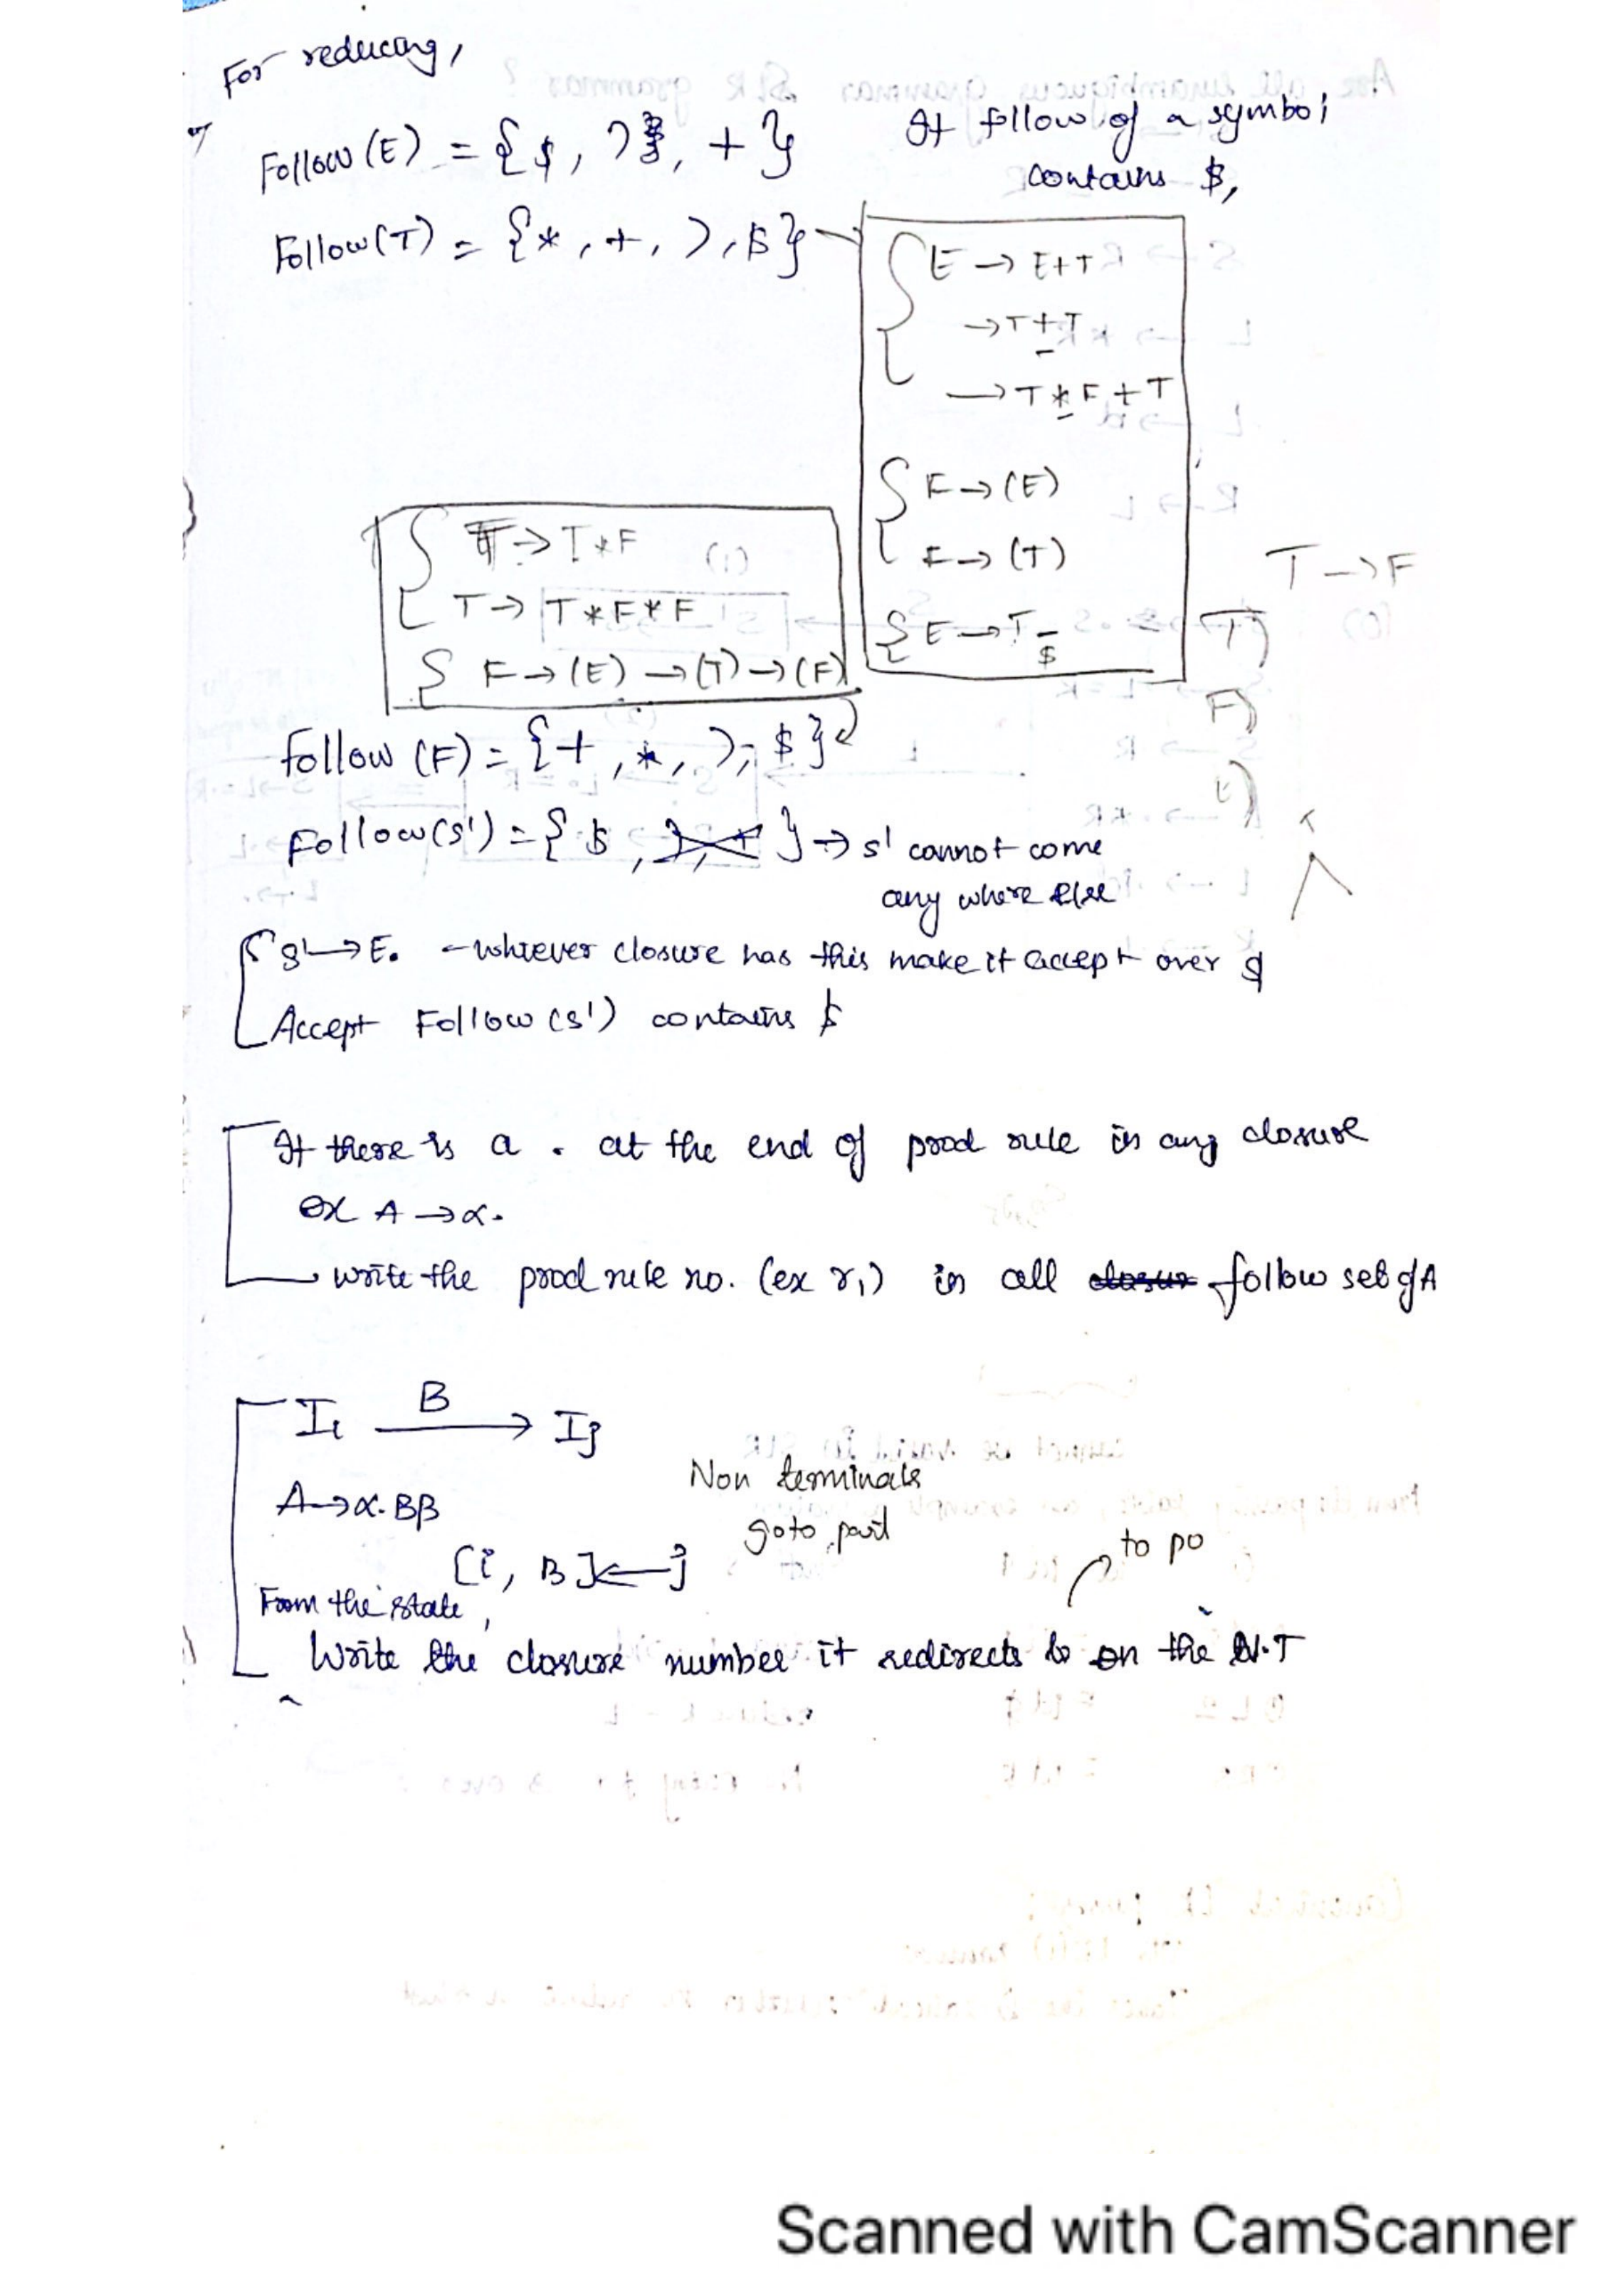 For reducing,
Follow (E) = {$, ), + }
If follow of a symbol
contains $,
Follow(T) = {*, +, ), $}
E → E+T
→ T+T
→ T*F+T
F → (E)
F → (T)
E → T
$
T → T*F
T → T*F*F
F → (E) → (T) → (F)
T → F
T)
F)
Follow (F) = {+, *, ), $}
Follow(S') = { $ } → S' cannot come
any where else
S' → E. - whiever closure has this make it accept over $
Accept Follow (S') contains $
If there is a . at the end of prod rule in any closure
ex A → α.
write the prod rule no. (ex r1) in all follow set of A
Ii B → Ij
A → α.Bβ
Non terminals
goto part
[i, B] ← j
to po
From the state,
Write the closure number it redirects to on the N.T
Scanned with CamScanner